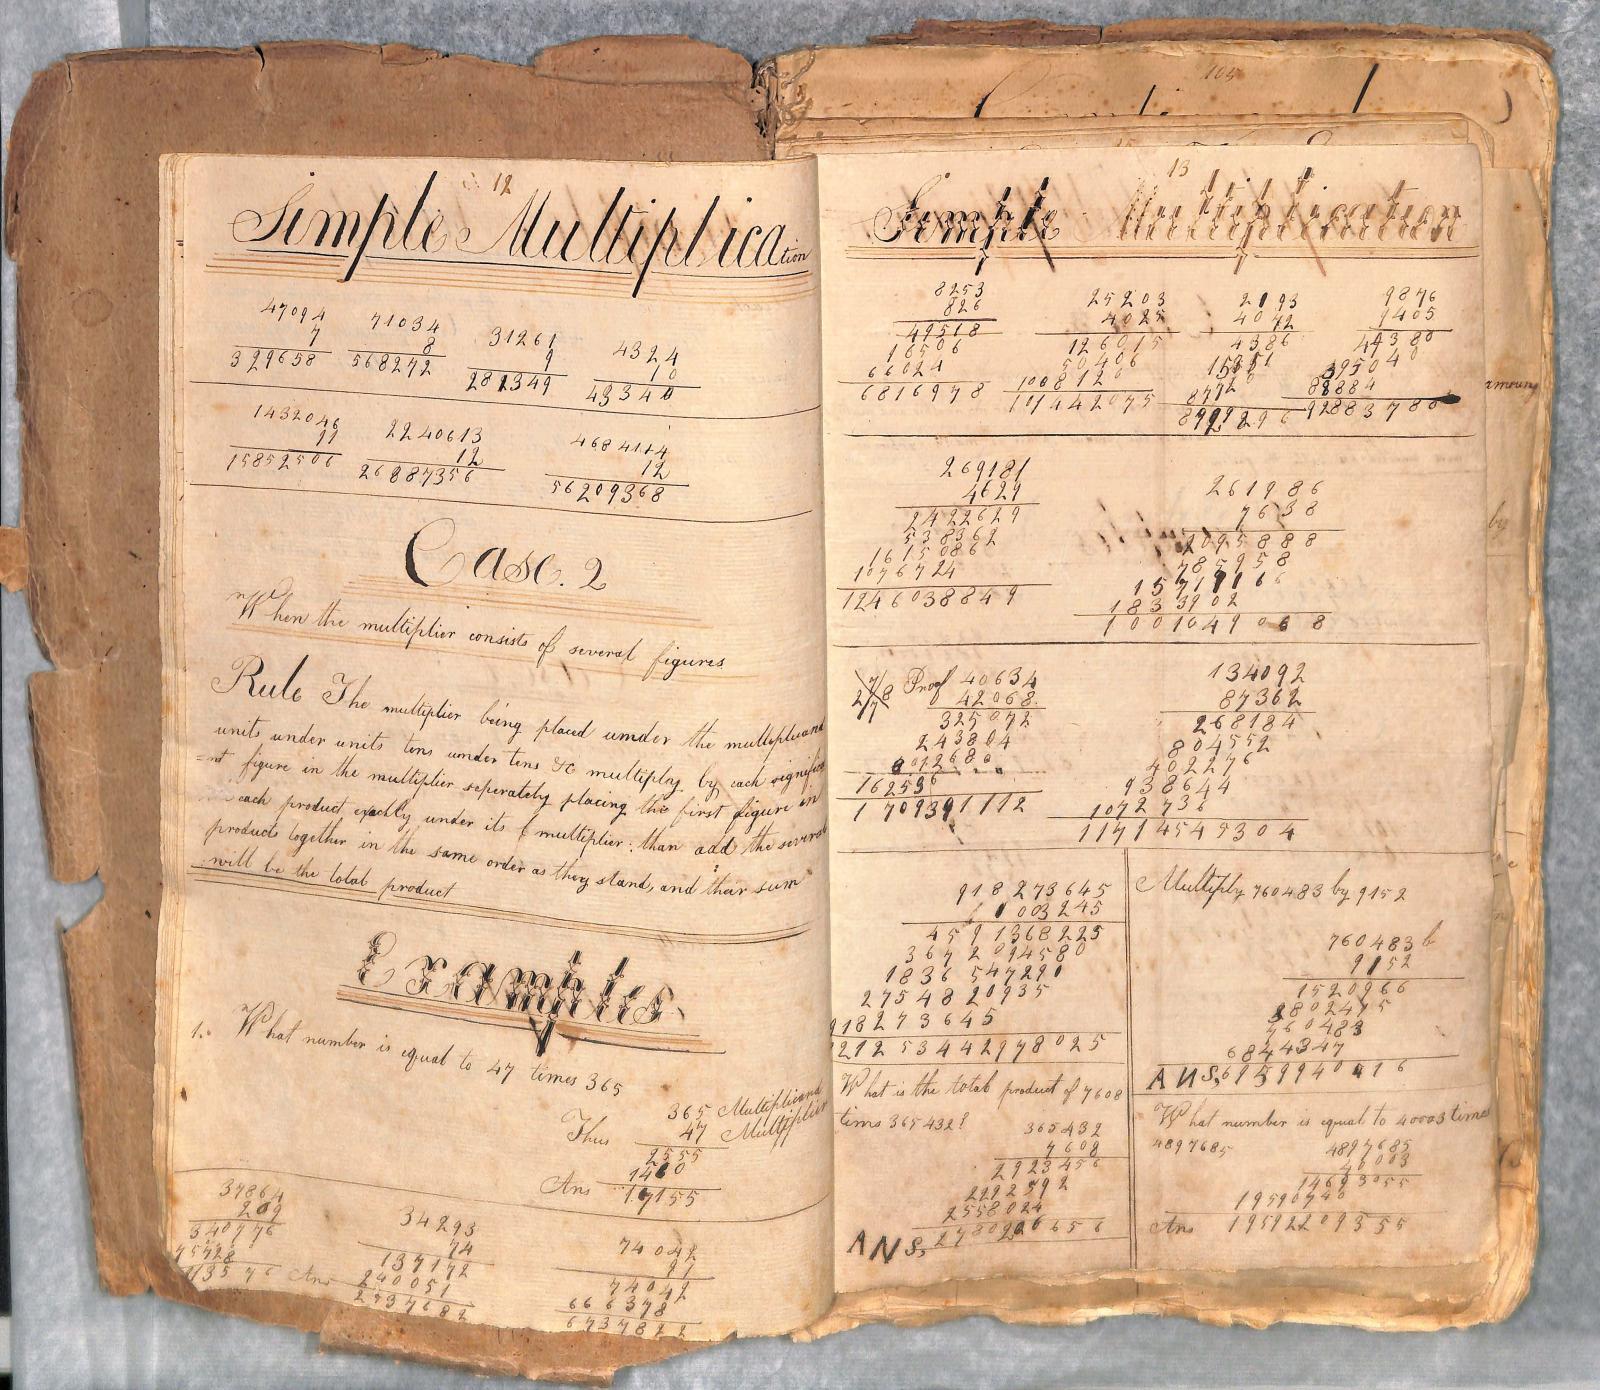 12
Simple Multiplication
47094 71034 31261 4324
7 8 9 10
329658 568272 281349 43240
1432046 2240613 4684114
11 12 12
15852506 26887356 56209368
Case. 2
When the multiplier consists of several figures
Rule The multiplier being placed under the multiplicand
units under units tens under tens &c multiply by each signific
=nt figure in the multiplier seperately placing the first figure in
each product exactly under its multiplier: than add the several
products together in the same order as they stand, and their sum
will be the total product
Examples
1. What number is equal to 47 times 365
365 Multiplicand
Thus 47 Multiplier
2555
1460
Ans 17155
37864 34293 74042
209 74 97
340776 137172
75728 240051 666378
Ans 2537682
105
13
Simple Multiplication
8253 25203 2193 9876
826 4025 4072 9405
49518 126015 4386 44380
16506 50406 15351 395040
66024 100812 8772 88884
6816978 101442075 92883780
269181 261986
4629 7638
2422629 2095888
538362 785958
1615086 1571916
1076724 1833902
1246038849 1001049068
Proof 40634 134092
42068 87362
325072 268184
243804 804552
812680 402276
162536 938644
1709391112 1072736
11714545304
918273645
1003245
4591368225
3673094580
1836547290
2754820935
918273645
921253442978025
Multiply 760483 by 9152
760483 b
9152
1520966
3802415
760483
6844347
ANS, 6959940416
What is the total product of 7608
times 365432?
365432
7608
2923456
2192592
2558024
ANS,
What number is equal to 40003 times
4897685 4897685
40003
14693055
19590740
Ans 19592209355
amoung
by